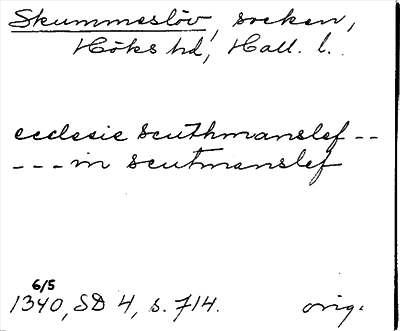 Skummeslöv, socken,
Höks hd, Hall. l.
ecclesie scuthmanslef --
--- in scutmanslef
6/5
1340, SD 4, s. 714. orig.